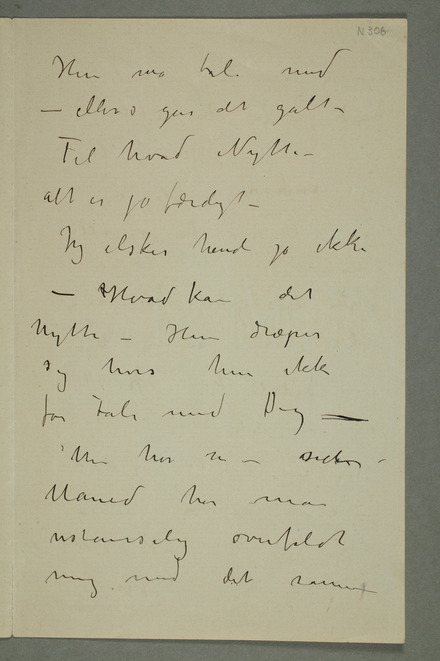 N 306
Hun må tale med
– ellers går det galt –
Til hvad Nytte –
alt er jo færdigt –
Jeg elsker hende jo ikke
– Hvad kan det
nytte – Hun dræper
sig hvis hun ikke
får Tale med Dig —
Nu har en –
Måned har man
ustanselig overfaldt
mig med det samme